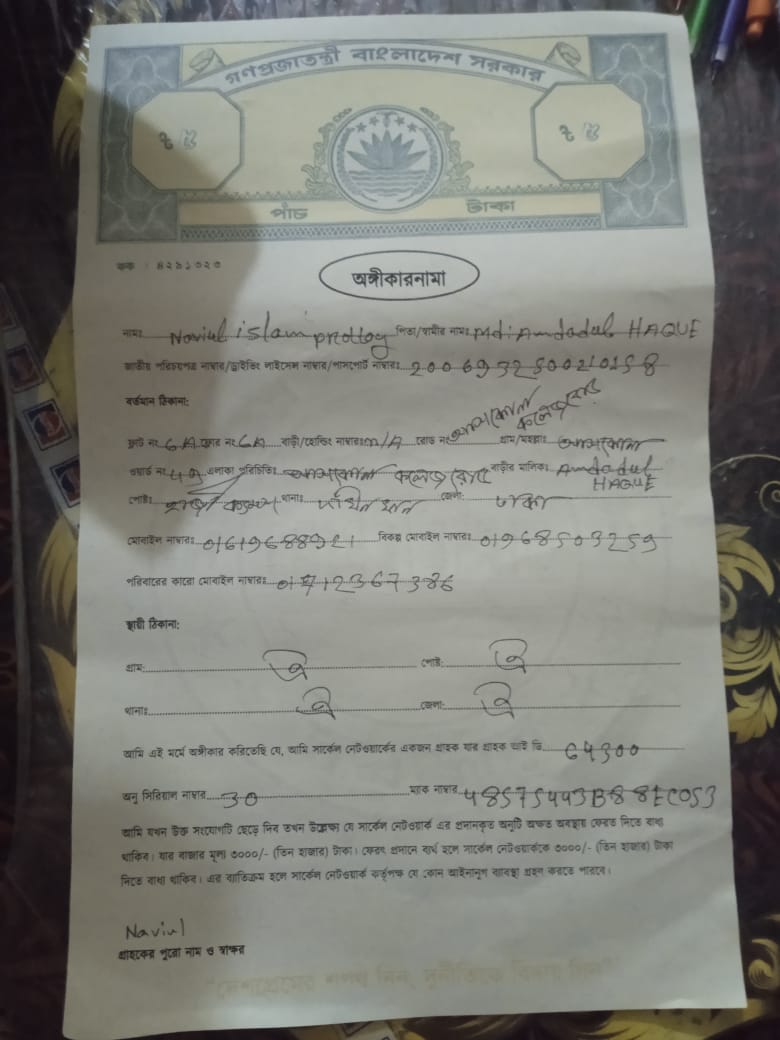 গণপ্রজাতন্ত্রী বাংলাদেশ সরকার
৳ ৫
৳ ৫
পাঁচ টাকা
কক : ৪২৯১৩২৩
অঙ্গীকারনামা
নামঃ Naviul islam prottoy পিতা/স্বামীর নামঃ Md: Amdadul HAQUE
জাতীয় পরিচয়পত্র নাম্বার/ড্রাইভিং লাইসেন্স নাম্বার/পাসপোর্ট নাম্বারঃ 2006932500210258
বর্তমান ঠিকানা:
ফ্ল্যাট নং 6A ফ্লোর নং 6A বাড়ী/হোল্ডিং নাম্বারঃ n/A রোড নং আশকোনা কলেজ রোড গ্রাম/মহল্লাঃ আশকোনা
ওয়ার্ড নং 49 এলাকা পরিচিতিঃ আশকোনা কলেজ রোড বাড়ীর মালিকঃ Amdadul HAQUE
পোষ্টঃ হাজী ক্যাম্প থানাঃ দক্ষিন খান জেলা: ঢাকা
মোবাইল নাম্বারঃ 01619688921 বিকল্প মোবাইল নাম্বারঃ 01968503259
পরিবারের কারো মোবাইল নাম্বারঃ 01712367386
স্থায়ী ঠিকানা:
গ্রাম: ঐ পোষ্ট: ঐ
থানাঃ ঐ জেলা: ঐ
আমি এই মর্মে অঙ্গীকার করিতেছি যে, আমি সার্কেল নেটওয়ার্কের একজন গ্রাহক যার গ্রাহক আই ডি 64300
অনু সিরিয়াল নাম্বার 30 ম্যাক নাম্বার 48575443B88EC053
আমি যখন উক্ত সংযোগটি ছেড়ে দিব তখন উল্লেক্ষ্য যে সার্কেল নেটওয়ার্ক এর প্রদানকৃত অনুটি অক্ষত অবস্থায় ফেরত দিতে বাধ্য
থাকিব। যার বাজার মূল্য ৩০০০/- (তিন হাজার) টাকা। ফেরৎ প্রদানে ব্যর্থ হলে সার্কেল নেটওয়ার্ককে ৩০০০/- (তিন হাজার) টাকা
দিতে বাধ্য থাকিব। এর ব্যাতিক্রম হলে সার্কেল নেটওয়ার্ক কর্তৃপক্ষ যে কোন আইনানুগ ব্যাবস্থা গ্রহন করতে পারবে।
Naviul
গ্রাহকের পুরো নাম ও স্বাক্ষর
"দেশপ্রেমের শপথ নিন, দুর্নীতিকে বিদায় দিন"